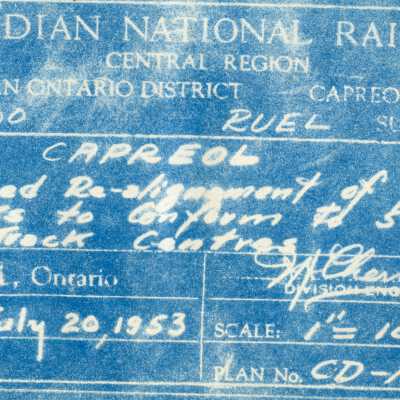 DIAN NATIONAL RAI
CENTRAL REGION
N ONTARIO DISTRICT CAPREO
RUEL SU
CAPREOL
ed Re-alignment of
to Conform to
Track Centres
, Ontario
DIVISION ENG
July 20, 1953
SCALE: 1" = 10
PLAN No. CD-